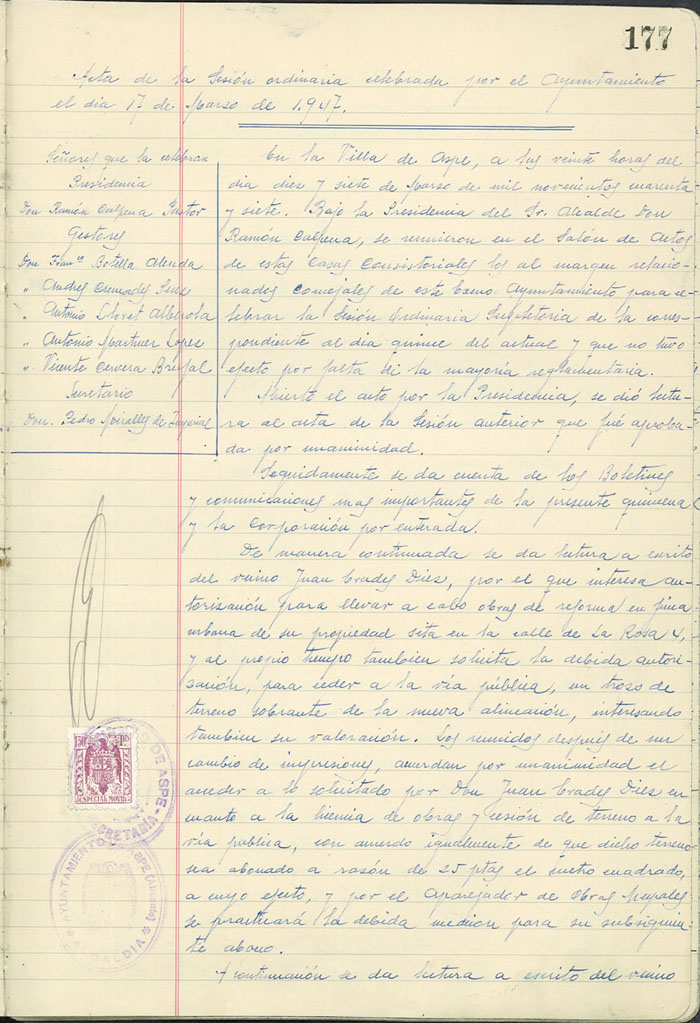 177
Acta de la Sesión ordinaria celebrada por el Ayuntamiento
el dia 17 de Marzo de 1.947.
Señores que la celebran
Presidencia
Don Ramón Calpena Pastor
Gestores
Don Franco Botella Alenda
" Andres Cremades
" Antonio Lloret Alberola
" Antonio Martinez Lopez
" Vicente Cervera Breifal
Secretario
Don. Pedro Miralles de Imperial
En la Villa de Aspe, a las veinte horas del
dia diez y siete de Marzo de mil novecientos cuarenta
y siete. Bajo la Presidencia del Sr. Alcalde Don
Ramón Calpena, se reunieron en el Salón de Actos
de estas Casas Consistoriales los al margen relacio-
nados Concejales de este Excmo. Ayuntamiento para ce-
lebrar la Sesión Ordinaria Supletoria de la corres-
pondiente al dia quince del actual y que no tuvo
efecto por falta de la mayoría reglamentaria.
Abierto el acto por la Presidencia, se dió lectu-
ra al acta de la Sesión anterior que fué aproba-
da por unanimidad.
Seguidamente se da cuenta de los Boletines
y comunicaciones mas importantes de la presente quincena
y la Corporación por enterada.
De manera continuada se da lectura a escrito
del vecino Juan Prades Dies, por el que interesa au-
torización para llevar a cabo obras de reforma en finca
urbana de su propiedad sita en la calle de La Rosa 4,
y al propio tiempo tambien solicita la debida autori-
zación, para ceder a la vía pública, un trozo de
terreno sobrante de la nueva alineación, interesando
tambien su valoración. Los reunidos después de un
cambio de impresiones, acuerdan por unanimidad el
acceder a lo solicitado por Don Juan Prades Dies en
cuanto a la licencia de obras y cesión de terreno a la
vía pública, con acuerdo igualmente de que dicho terreno
sea abonado a razón de 25 ptas el metro cuadrado,
a cuyo efecto, y por el Aparejador de Obras Mcpales
se practicará la debida medicion para su subsiguien-
te abono.
A continuación se da lectura a escrito del vecino
50 Cts
ESPECIAL MOVIL
DE ASPE
SECRETARIA
AYUNTAMIENTO DE ASPE (Alicante)
ALCALDIA